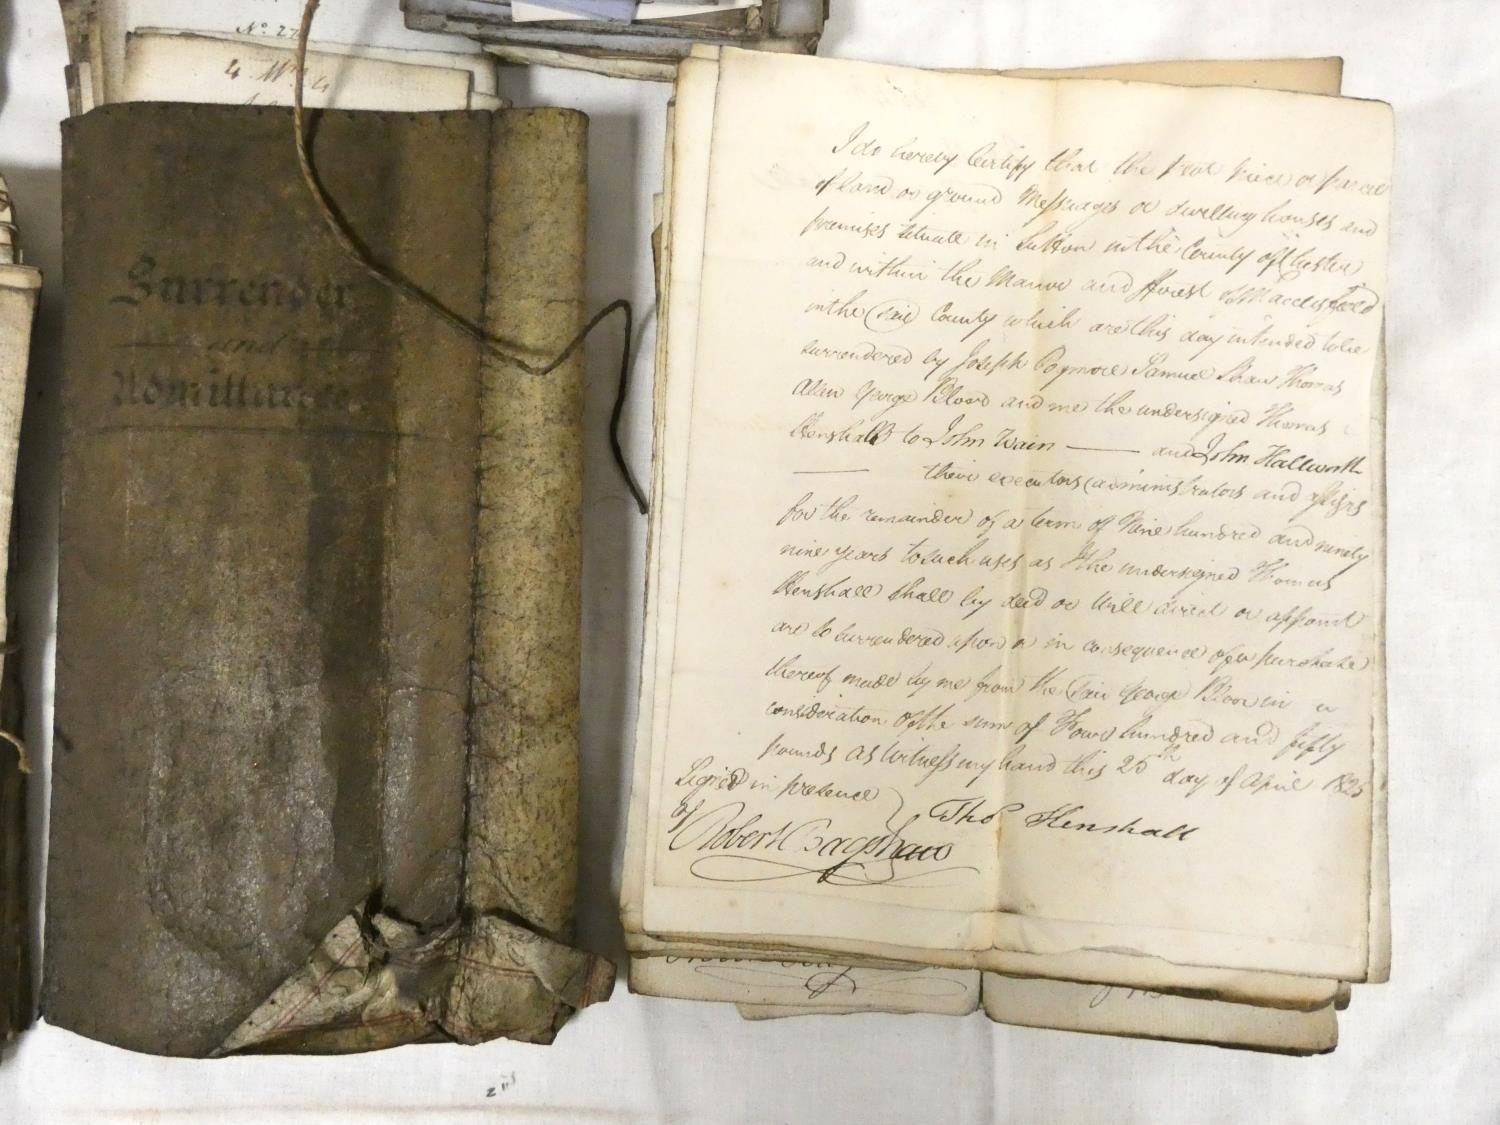 No. 27
4 Wm 4
Surrender
and
Admittance
I do hereby Certify that the that piece or parcel
of land or ground Messuages or dwelling houses and
premises situate in Sutton in the County of Chester
and within the Manor and fforest of Macclesfield
in the said County which are this day intended to be
surrendered by Joseph Pogmore Samuel Shaw Thomas
Allen George Bloor and me the undersigned Thomas
Henshall to John Wain —— and John Hallworth
—— their executors administrators and assigns
for the remainder of a term of Nine hundred and ninety
nine years to such uses as I the undersigned Thomas
Henshall shall by deed or Will direct or appoint
are so surrendered upon or in consequence of a purchase
thereof made by me from the said George Bloor in
consideration of the sum of Four hundred and fifty
pounds As Witness my hand this 25th day of April 1825
Signed in presence
of
Thos Henshall
Robert Bagshaw